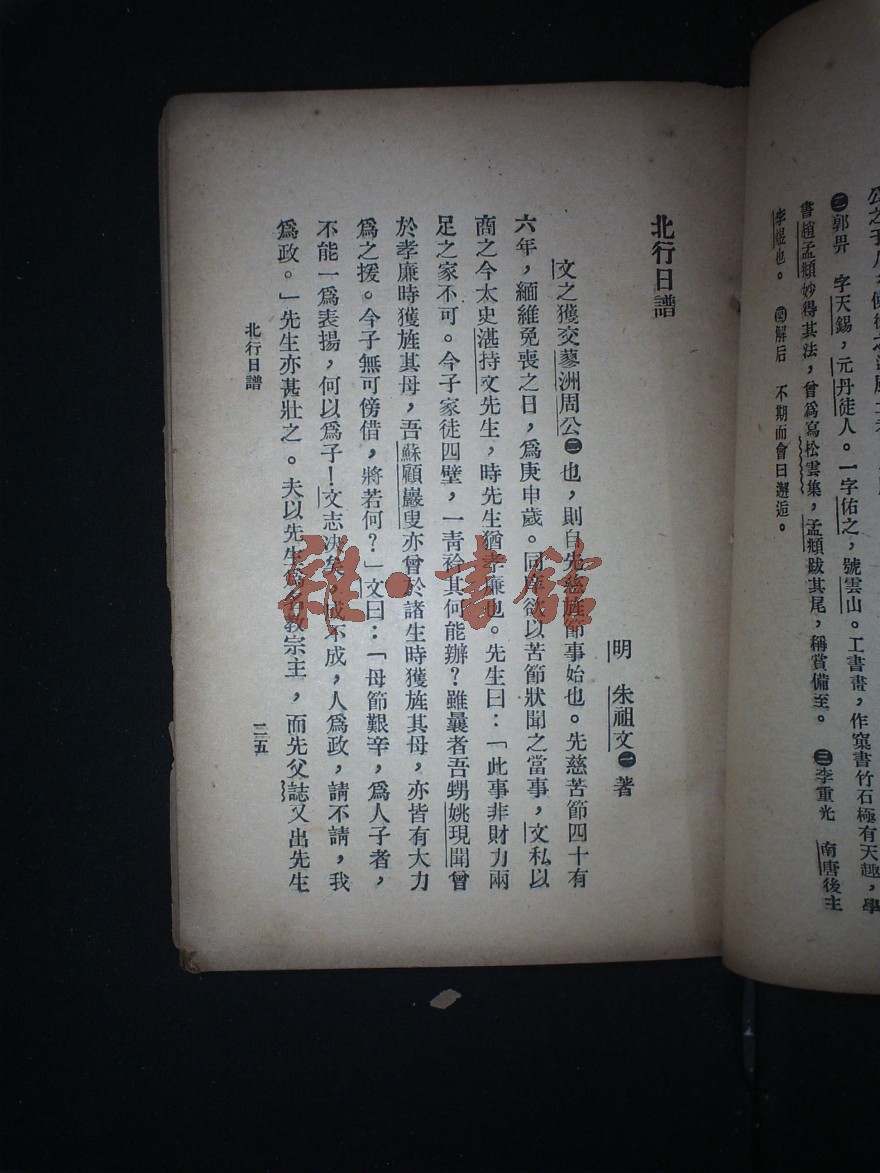 ㊂郭畀　字天錫，元丹徒人。一字佑之，號雲山。工書畫，作窠書竹石極有天趣，學
書趙孟頫妙得其法，曾爲寫松雲集，孟頫跋其尾，稱賞備至。　㊂李重光　南唐後主
李煜也。　㊃解后　不期而會曰邂逅。
北行日譜
明　朱祖文㊀著
文之獲交蓼洲周公㊁也，則自先慈旌節事始也。先慈苦節四十有
六年，緬維免喪之日，爲庚申歲。同庠欲以苦節狀聞之當事，文私以
商之今太史湛持文先生，時先生猶孝廉也。先生曰：「此事非財力兩
足之家不可。今子家徒四壁，一靑衿其何能辦？雖曩者吾甥姚現聞曾
於孝廉時獲旌其母，吾蘇顧巖叟亦曾於諸生時獲旌其母，亦皆有大力
爲之援。今子無可傍借，將若何？」文曰：「母節艱辛，爲人子者，
不能一爲表揚，何以爲子！文志决矣。成不成，人爲政，請不請，我
爲政。」先生亦甚壯之。夫以先生爲名教宗主，而先父誌又出先生
北行日譜
二三五
雜·書館